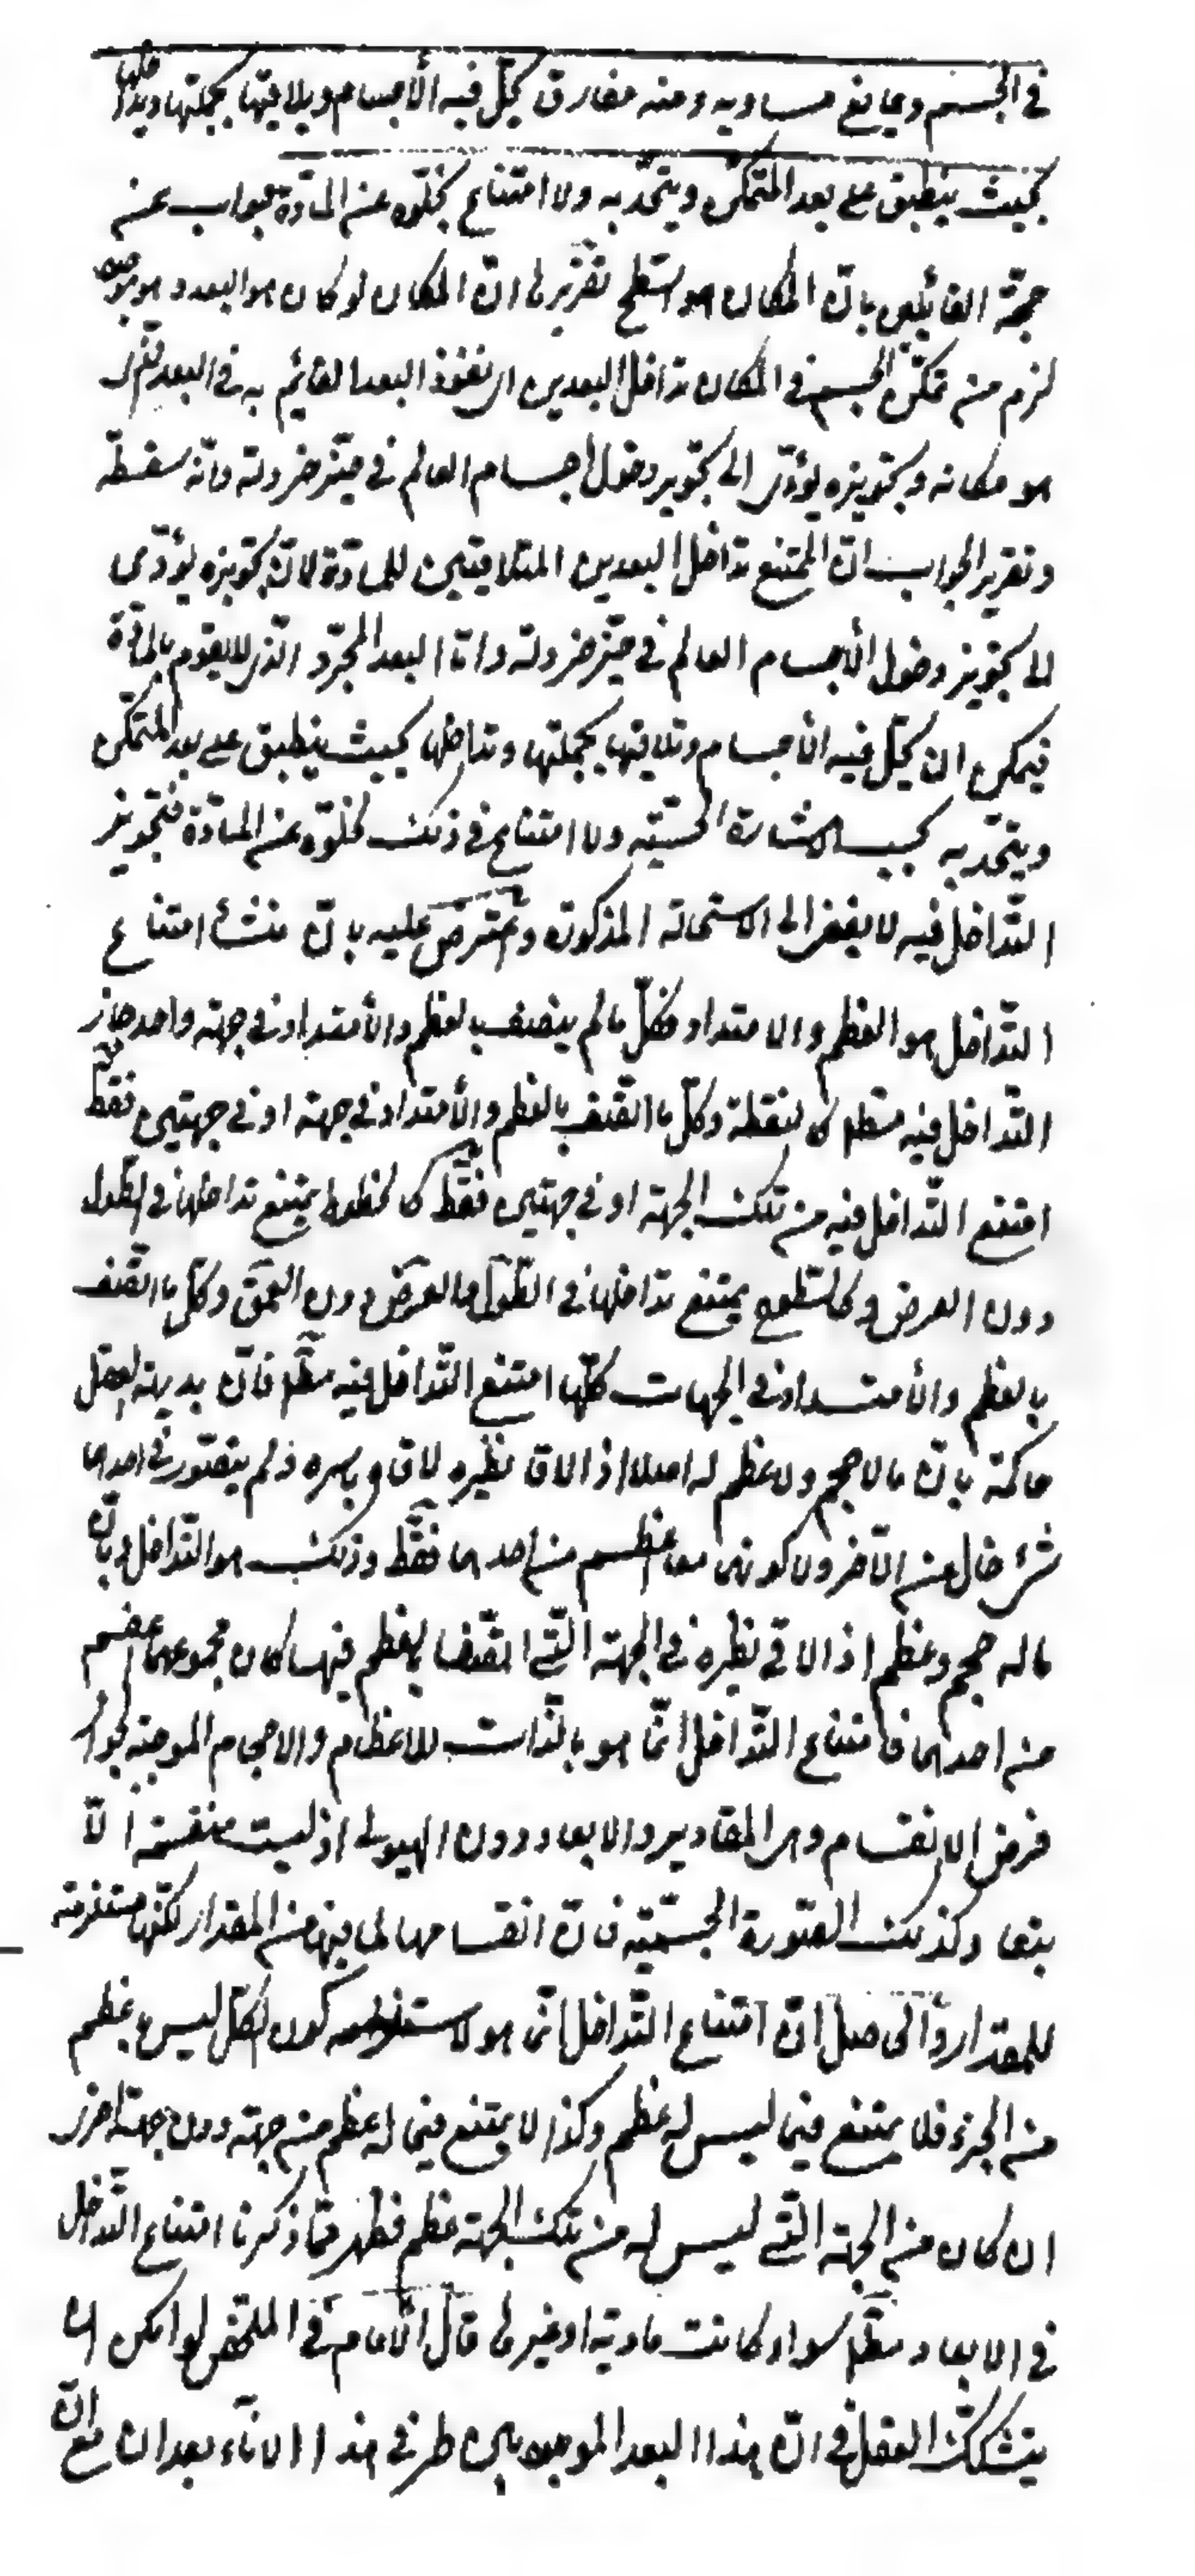 في الجسم ويمانع مساويه ومنه مفارق تحل فيه الأجسام ويلاقيها بجملتها ويداخلها
بحيث ينطبق على بعد المتمكن ويتحد به ولا امتناع لخلوه عن المادة جواب عن
حجة القائلين بأن المكان هو السطح تقريرها ان المكان لو كان هو البعد وهو موجود
لزم من تمكن الجسم في المكان تداخل البعدين اى نفوذ البعد القائم به في البعد الذى
هو مكانه وتجويزه يؤدى الى تجويز دخول اجسام العالم في حيز خردلة وانه سفسطة
وتقرير الجواب ان الممتنع تداخل البعدين الملاقيين للمادة لان تجويزه يؤدى
الى تجويز دخول الأجسام العالم في حيز خردلة واما البعد المجرد الذى لا يقوم بالمادة
فيمكن ان تحل فيه الأجسام وتلاقيها بجملتها وتداخلها بحيث ينطبق على بعد المتمكن
ويتحد به بحسب الاشارة الحسية ولا امتناع في ذلك لخلوه عن المادة فتجويز
التداخل فيه لا يفضى الى الاستحالة المذكورة ويعترض عليه بان منشأ امتناع
التداخل هو العظم والامتداد فكل ما لم يتصف بالعظم والأمتداد في جهة واحد جاز
التداخل فيه مطلقا كالنقطة وكل ما اتصف بالعظم والأمتداد في جهة او في جهتين فقط
امتنع التداخل فيه من تلك الجهة او في جهتين فقط كالخطوط يمتنع تداخلها في الطول
دون العرض وكالسطوح يمتنع تداخلها في الطول والعرض دون العمق وكل ما اتصف
بالعظم والأمتداد في الجهات كلها امتنع التداخل فيه مطلقا فان بديهة العقل
حاكمة بان ما لا حجم ولا عظم له اصلا اذا لاقى نظيره لاقاه باسره فلم يتصور في احدهما
شئ خال عن الآخر ولا كونهما معا اعظم من احدهما فقط وذلك هو التداخل وبان
ما له حجم وعظم اذا لاقى نظيره في الجهة التي اتصفا بالعظم فيها كان مجموعهما اعظم
من احدهما فامتناع التداخل انما هو بالذات للاعظام والاحجام الموجبة لجواز
فرض الانقسام وهى المقادير والابعاد دون الهيولى اذ ليست منقسمة الا
بتبعها وكذلك الصورة الجسمية فان انقسامها لما فيها من المقدار لكنها مستلزمة
للمقدار والحاصل ان امتناع التداخل انما هو لاستلزامه كون الكل ليس باعظم
من الجزء فلا يمتنع فيما ليس له عظم وكذا لا يمتنع فيما له عظم من جهة دون جهة اخرى
ان كان من الجهة التي ليس له من تلك الجهة عظم فظهر مما ذكرنا امتناع التداخل
في الابعاد مطلقا سواء كانت مادية او غيرها قال الأمام في الملخص لو امكن ان
يتشكك العقل في ان هذا البعد الموجود بين طرفي هذا الاناء بعدان مع ان